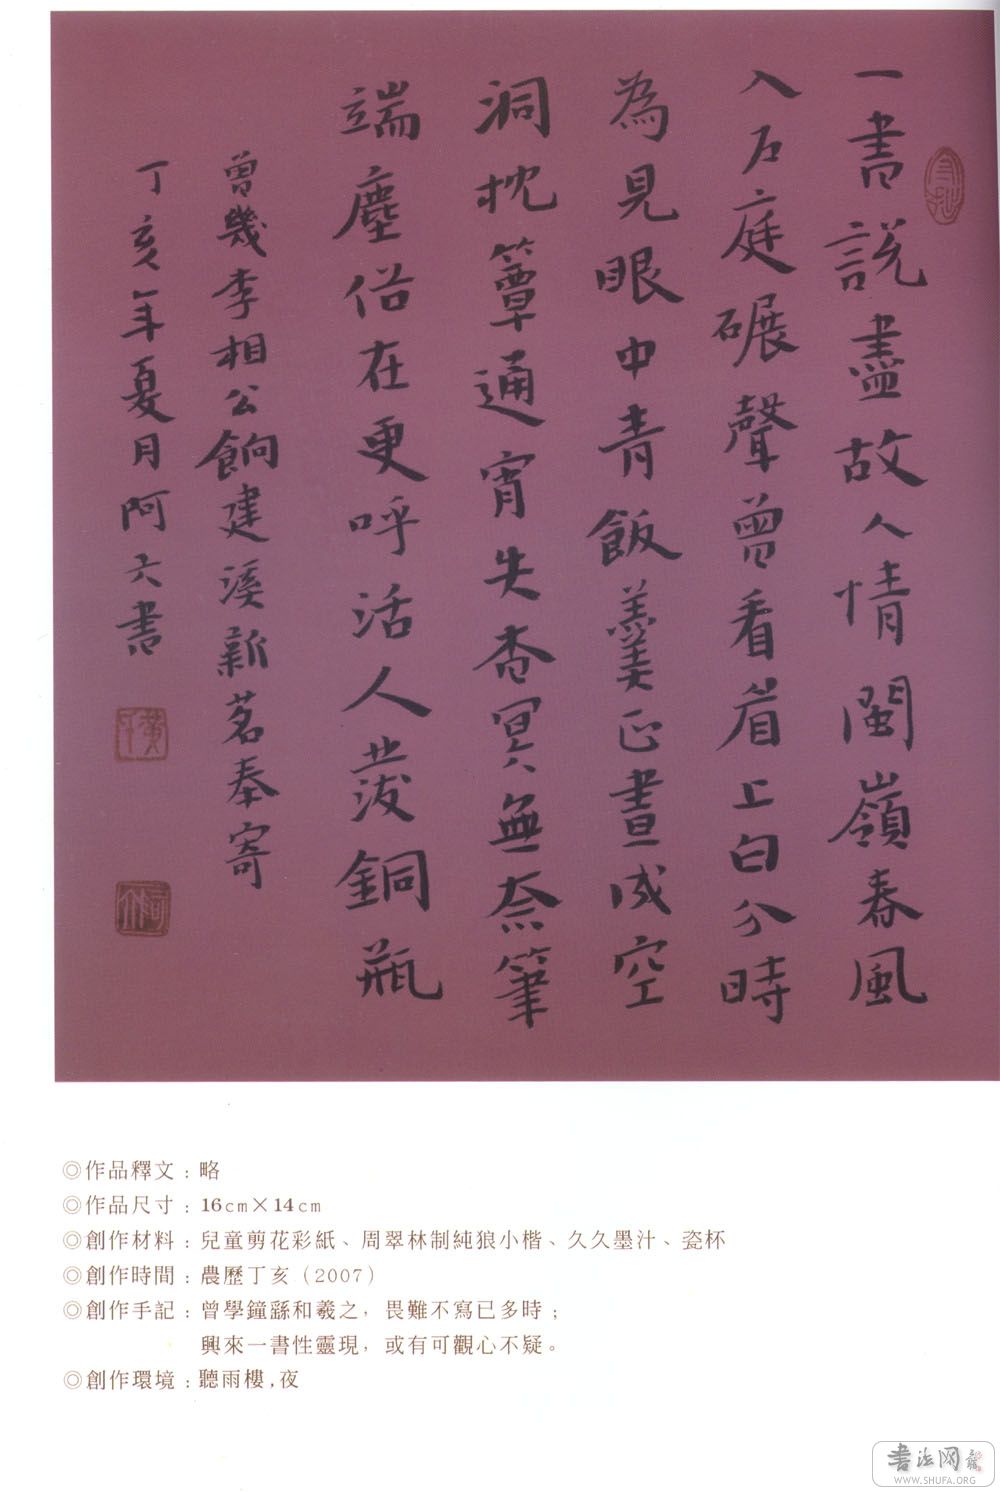 一書說盡故人情閩嶺春風
入戶庭碾聲曾看眉上白分時
為見眼中青飯羹正晝成空
洞枕簟通宵失杳冥無奈筆
端塵俗在更呼活人發銅瓶
曾幾李相公餉建溪新茗奉寄
丁亥年夏月阿六書
◎作品釋文：略
◎作品尺寸：16cm×14cm
◎創作材料：兒童剪花彩紙、周翠林制純狼小楷、久久墨汁、瓷杯
◎創作時間：農歷丁亥（2007）
◎創作手記：曾學鐘繇和羲之，畏難不寫已多時；
興來一書性靈現，或有可觀心不疑。
◎創作環境：聽雨樓，夜
书法网
WWW.SHUFA.ORG